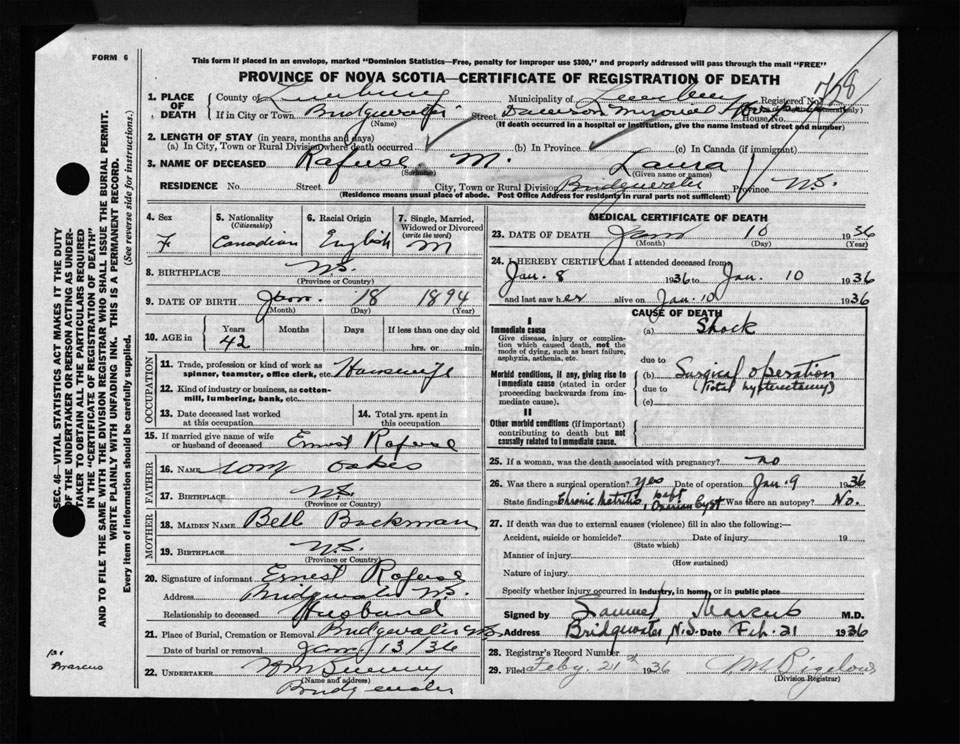 FORM 6
This form if placed in an envelope, marked "Dominion Statistics—Free, penalty for improper use $300," and properly addressed will pass through the mail "FREE"
PROVINCE OF NOVA SCOTIA—CERTIFICATE OF REGISTRATION OF DEATH
1. PLACE OF DEATH County of Lunenburg Municipality of Lunenburg Registered No. 758
If in City or Town Bridgewater (Name) Street Dawson Memorial Hospital House No.
(If death occurred in a hospital or institution, give the name instead of street and number)
2. LENGTH OF STAY (in years, months and days)
(a) In City, Town or Rural Division where death occurred (b) In Province (c) In Canada (if immigrant)
3. NAME OF DECEASED Rafuse M. Laura
(Surname) (Given name or names)
RESIDENCE No. Street City, Town or Rural Division Bridgewater Province N.S.
(Residence means usual place of abode. Post Office Address for residents in rural parts not sufficient)
4. Sex F
5. Nationality (Citizenship) Canadian
6. Racial Origin English
7. Single, Married, Widowed or Divorced (write the word) M
8. BIRTHPLACE N.S.
(Province or Country)
9. DATE OF BIRTH Jan. 18 1894
(Month) (Day) (Year)
10. AGE in Years 42 Months Days If less than one day old
hrs. or min.
OCCUPATION
11. Trade, profession or kind of work as spinner, teamster, office clerk, etc. Housewife
12. Kind of industry or business, as cotton-mill, lumbering, bank, etc.
13. Date deceased last worked at this occupation
14. Total yrs. spent in this occupation
15. If married give name of wife or husband of deceased Ernest Rafuse
FATHER
16. NAME Oakes
17. BIRTHPLACE N.S.
(Province or Country)
MOTHER
18. MAIDEN NAME Bell Backman
19. BIRTHPLACE N.S.
(Province or Country)
20. Signature of informant Ernest Rafuse
Address Bridgewater N.S.
Relationship to deceased Husband
21. Place of Burial, Cremation or Removal Bridgewater N.S.
Date of burial or removal Jany 13/36
22. UNDERTAKER
(Name and address)
Bridgewater
MEDICAL CERTIFICATE OF DEATH
23. DATE OF DEATH Jan 10 1936
(Month) (Day) (Year)
24. I HEREBY CERTIFY that I attended deceased from
Jan. 8 1936 to Jan. 10 1936
and last saw her alive on Jan. 10 1936
CAUSE OF DEATH
I
Immediate cause (a) Shock
Give disease, injury or complication which caused death, not the mode of dying, such as heart failure, asphyxia, asthenia, etc.
due to
Morbid conditions, if any, giving rise to immediate cause (stated in order proceeding backwards from immediate cause).
(b) Surgical operation
due to (Total hysterectomy)
(c)
II
Other morbid conditions (if important) contributing to death but not causally related to immediate cause.
25. If a woman, was the death associated with pregnancy? no
26. Was there a surgical operation? Yes Date of operation Jan. 9 1936
State findings Chronic Metritis, left Ovarian Cyst Was there an autopsy? No.
27. If death was due to external causes (violence) fill in also the following:—
Accident, suicide or homicide? Date of injury 19
(State which)
Manner of injury
(How sustained)
Nature of injury
Specify whether injury occurred in industry, in home, or in public place
Signed by Samuel Marcus M.D.
Address Bridgewater N.S. Date Feb. 21 1936
28. Registrar's Record Number
29. Filed Feby. 21st 1936 Bigelow
(Division Registrar)
SEC. 46—VITAL STATISTICS ACT MAKES IT THE DUTY
OF THE UNDERTAKER OR PERSON ACTING AS UNDERTAKER TO OBTAIN ALL THE PARTICULARS REQUIRED
IN THE "CERTIFICATE OF REGISTRATION OF DEATH"
AND TO FILE THE SAME WITH THE DIVISION REGISTRAR WHO SHALL ISSUE THE BURIAL PERMIT.
WRITE PLAINLY WITH UNFADING INK. THIS IS A PERMANENT RECORD.
Every item of information should be carefully supplied. (See reverse side for instructions.)
Marcus